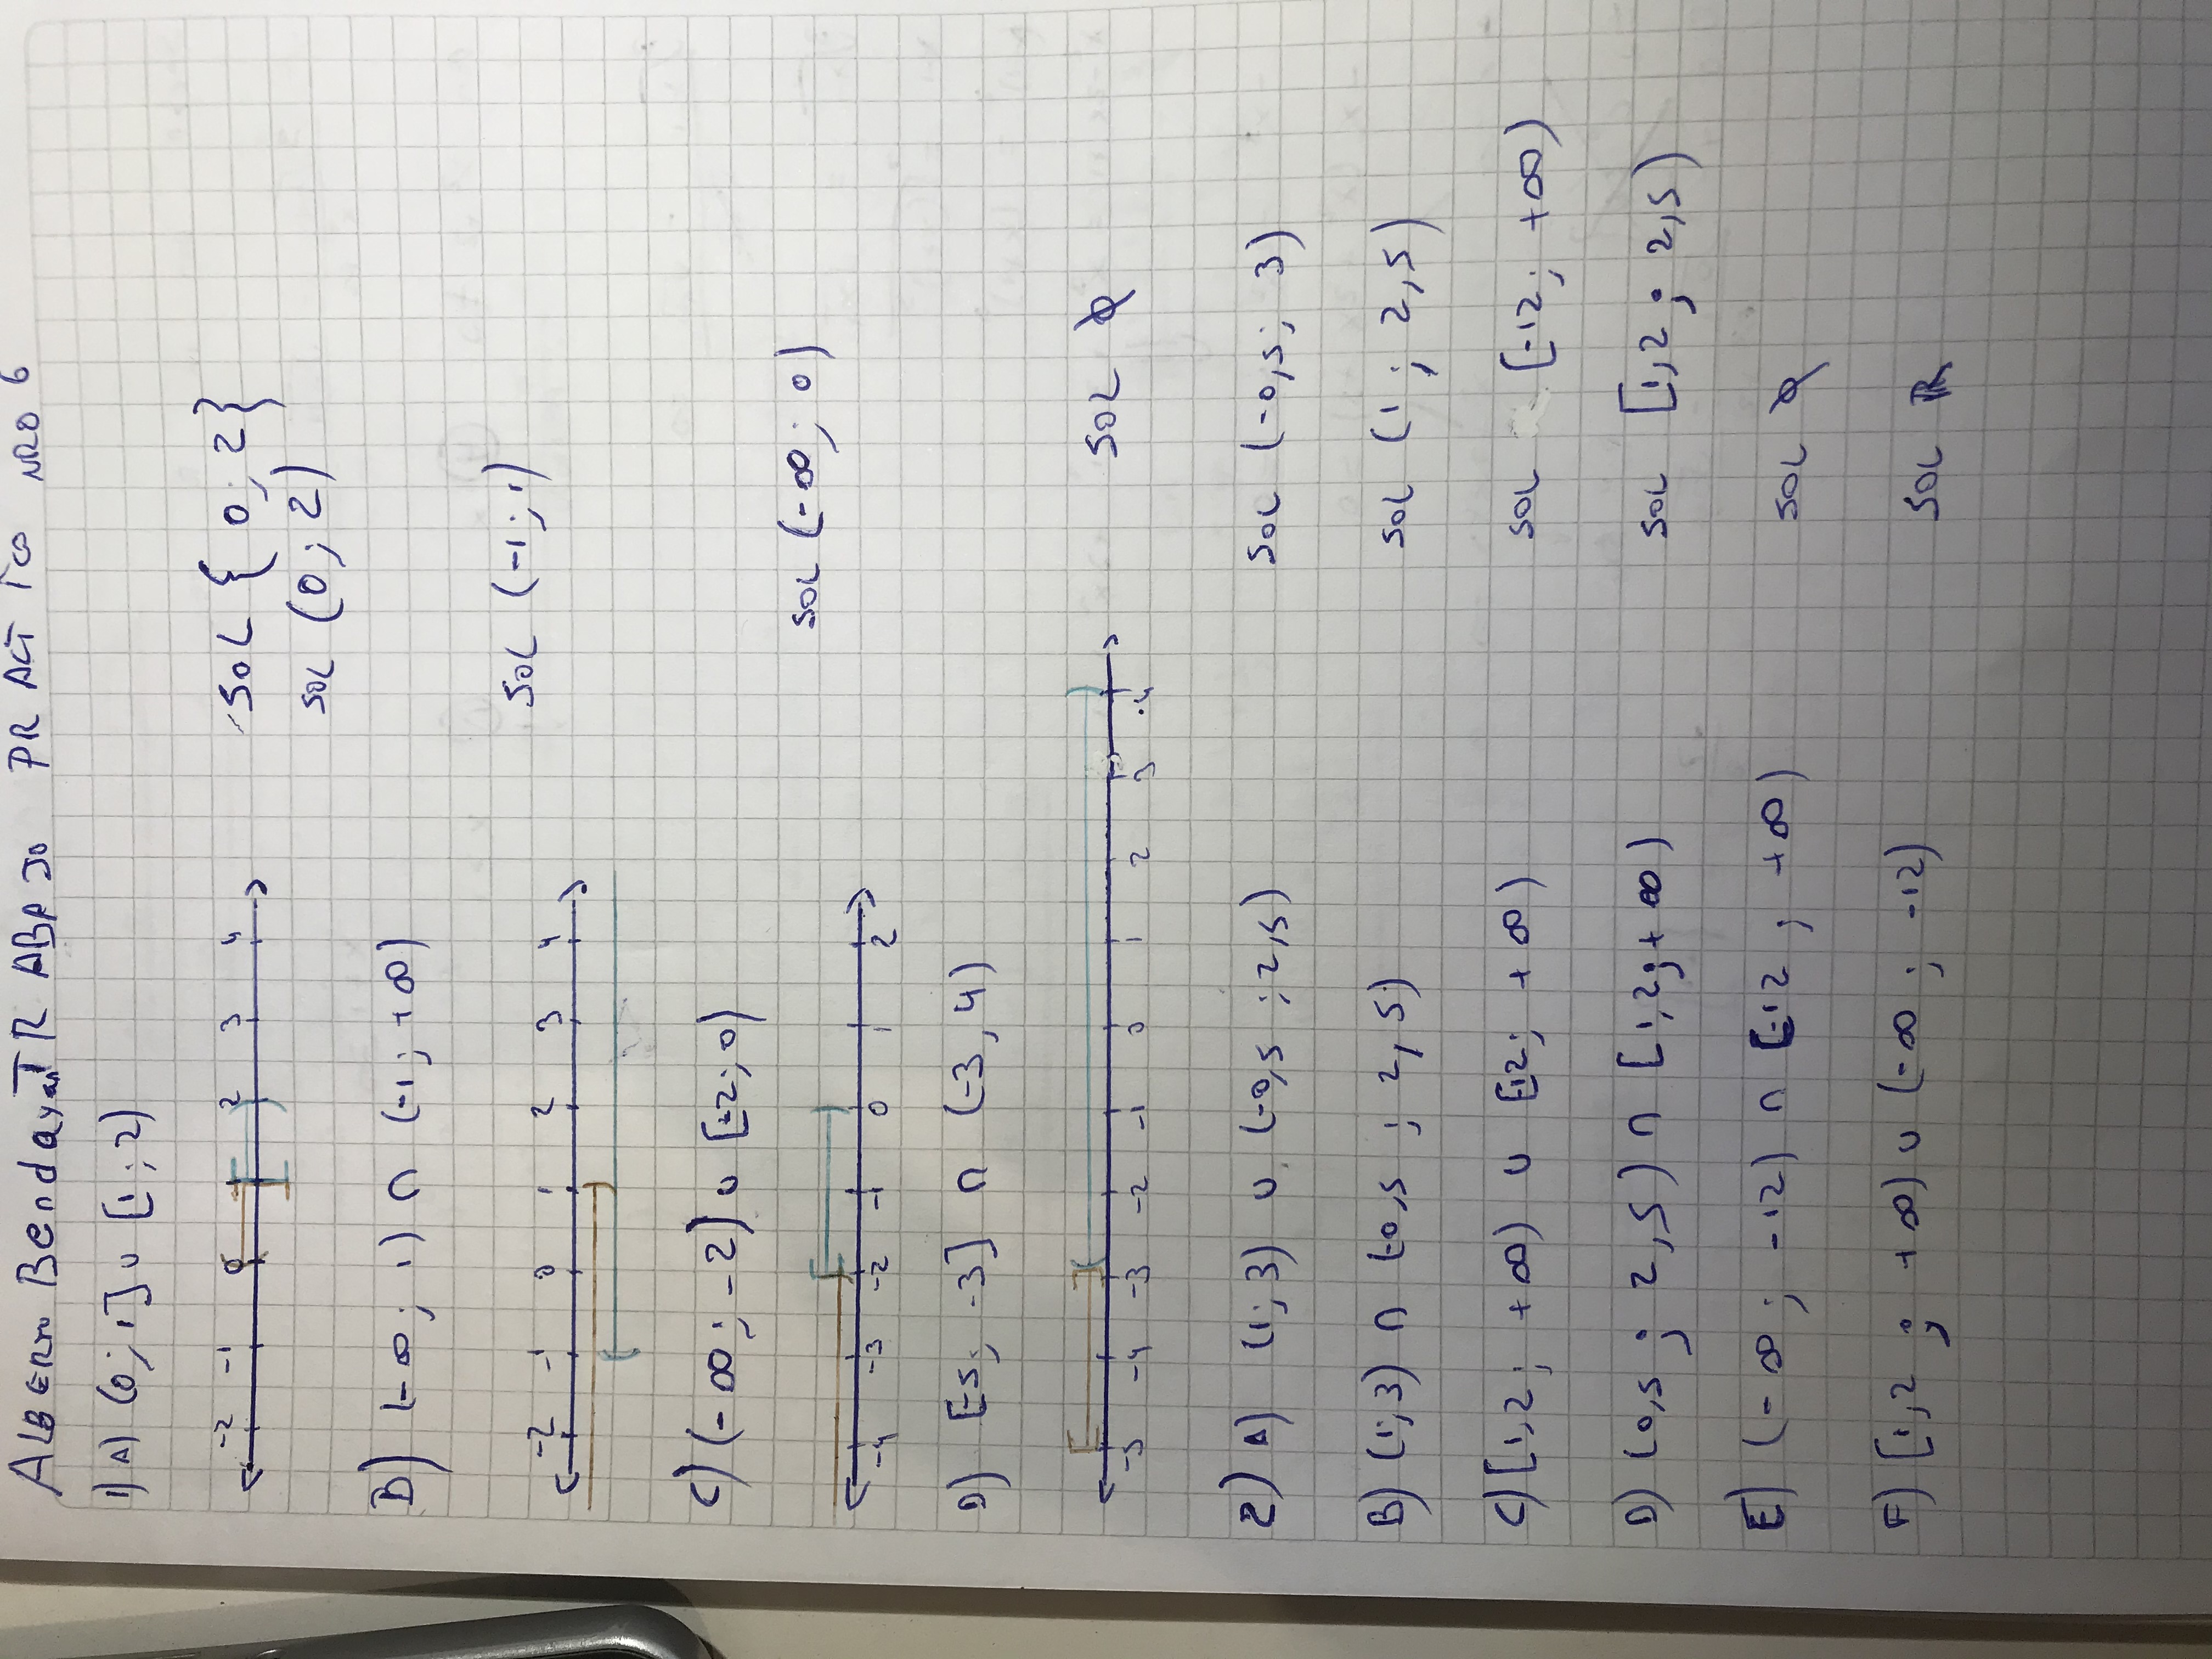 ALBERTO Bendayan TRABAJO PRACTICO NRO 6
1) A) (0; 1] ∪ [1; 2)
-2 -1 0 1 2 3 4
SOL { 0; 2}
SOL (0; 2)
B) (-∞; 1) ∩ (-1; +∞)
SOL (-1; 1)
-2 -1 0 1 2 3 4
C) (-∞; -2) ∪ [-2; 0)
SOL (-∞; 0)
-4 -3 -2 -1 0 1 2
D) [-5; -3] ∩ (-3, 4)
SOL ∅
-5 -4 -3 -2 -1 0 1 2 3 4
2) A) (1; 3) ∪ (-0,5 ; 2,5) SOL (-0,5; 3)
B) (1; 3) ∩ (-0,5 ; 2,5) SOL (1 ; 2,5)
C) [1,2; +∞) ∪ [-12; +∞) SOL [-12; +∞)
D) (0,5 ; 2,5) ∩ [1,2; +∞) SOL [1,2 ; 2,5)
E) (-∞ ; -12) ∩ [-12 ; +∞) SOL ∅
F) [1,2 ; +∞) ∪ (-∞ ; -12) SOL ℝ